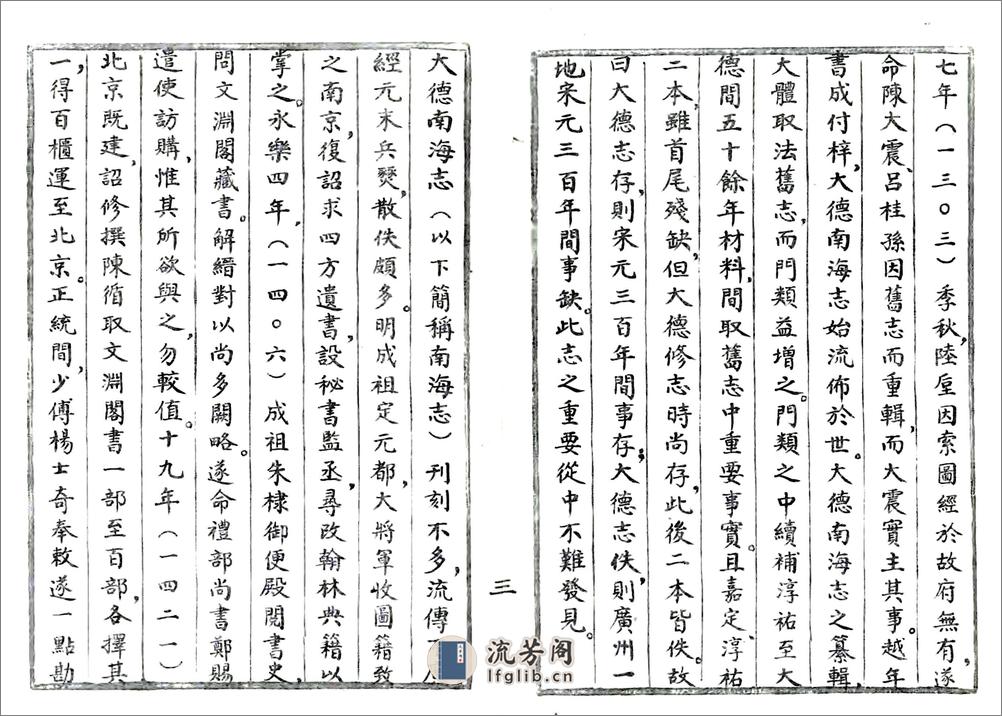 七年（一三〇三）季秋，陸垕因索圖經於故府無有，遂
命陳大震、呂桂孫因舊志而重輯，而大震實主其事。越年
書成付梓，大德南海志始流佈於世。大德南海志之纂輯，
大體取法舊志，而門類益增之。門類之中續補淳祐至大
德間五十餘年材料，間取舊志中重要事實。且嘉定、淳祐
二本，雖首尾殘缺，但大德修志時尚存，此後二本皆佚。故
曰大德志存，則宋元三百年間事存；大德志佚，則廣州一
地宋元三百年間事缺。此志之重要從中不難發見。
三
大德南海志（以下簡稱南海志）刊刻不多，流傳
經元末兵燹，散佚頗多。明成祖定元都，大將軍收圖籍致
之南京，復詔求四方遺書，設秘書監丞，尋改翰林典籍以
掌之。永樂四年，（一四〇六）成祖朱棣御便殿閱書史，
問文淵閣藏書。解縉對以尚多闕略。遂命禮部尚書鄭賜
遣使訪購，惟其所欲與之，勿較值。十九年（一四二一）
北京既建，詔修撰陳循取文淵閣書一部至百部，各擇其
一，得百櫃運至北京。正統間，少傅楊士奇奉敕遂一點勘
流芳阁
lfglib.cn